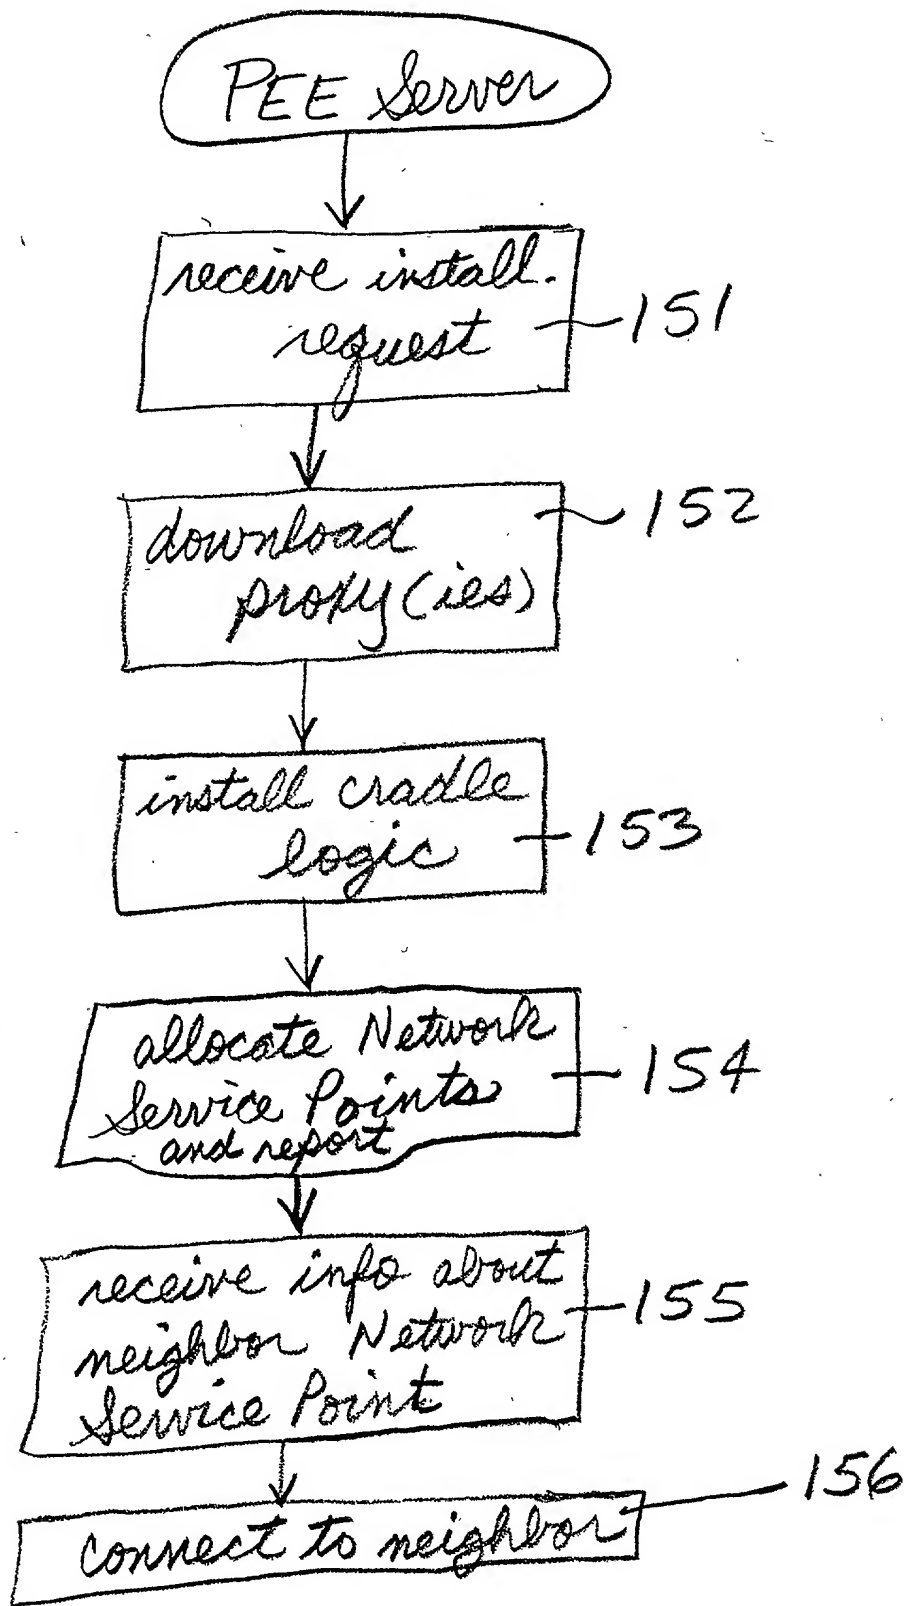 PEE Server
receive install.
request
151
download
152
proxy(ies)
install cradle
logic
153
allocate Network
Service Points
and report
154
receive info about
neighbor Network
Service Point
155
connect to neighbor
156